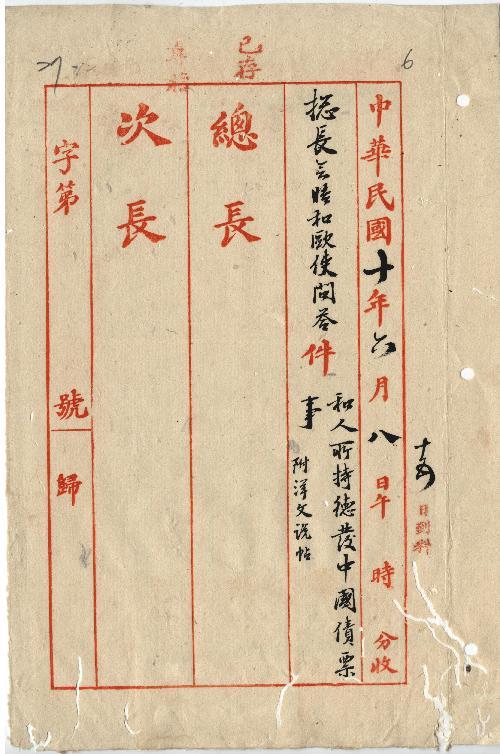 6
已存
十五
日到科
中華民國十年六月八日午 時 分收
總長會晤和歐使問答件
和人所持德發中國債票
事
附洋文說帖
總長
次長
字第 號
歸